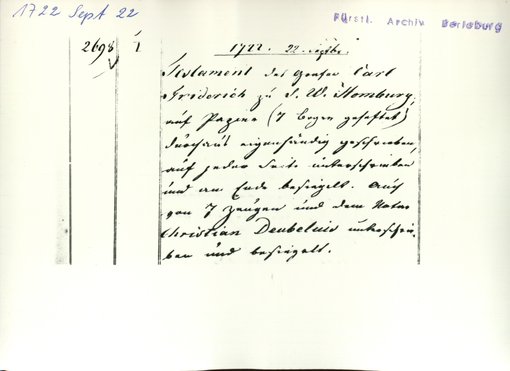 1722 Sept 22
Fürstl. Archiv Berleburg
2698 1
1722. 22. Septbr.
Testament des Grafen Carl
Friderich zu S. W. Homburg,
auf Papier (7 Bogen geheftet)
durchaus eigenhändig geschrieben,
auf jeder Seite unterschrieben
und am Ende besiegelt. Auch
von 7 Zeugen und dem Notar
Christian Deubelius unterschrie-
ben und besiegelt.